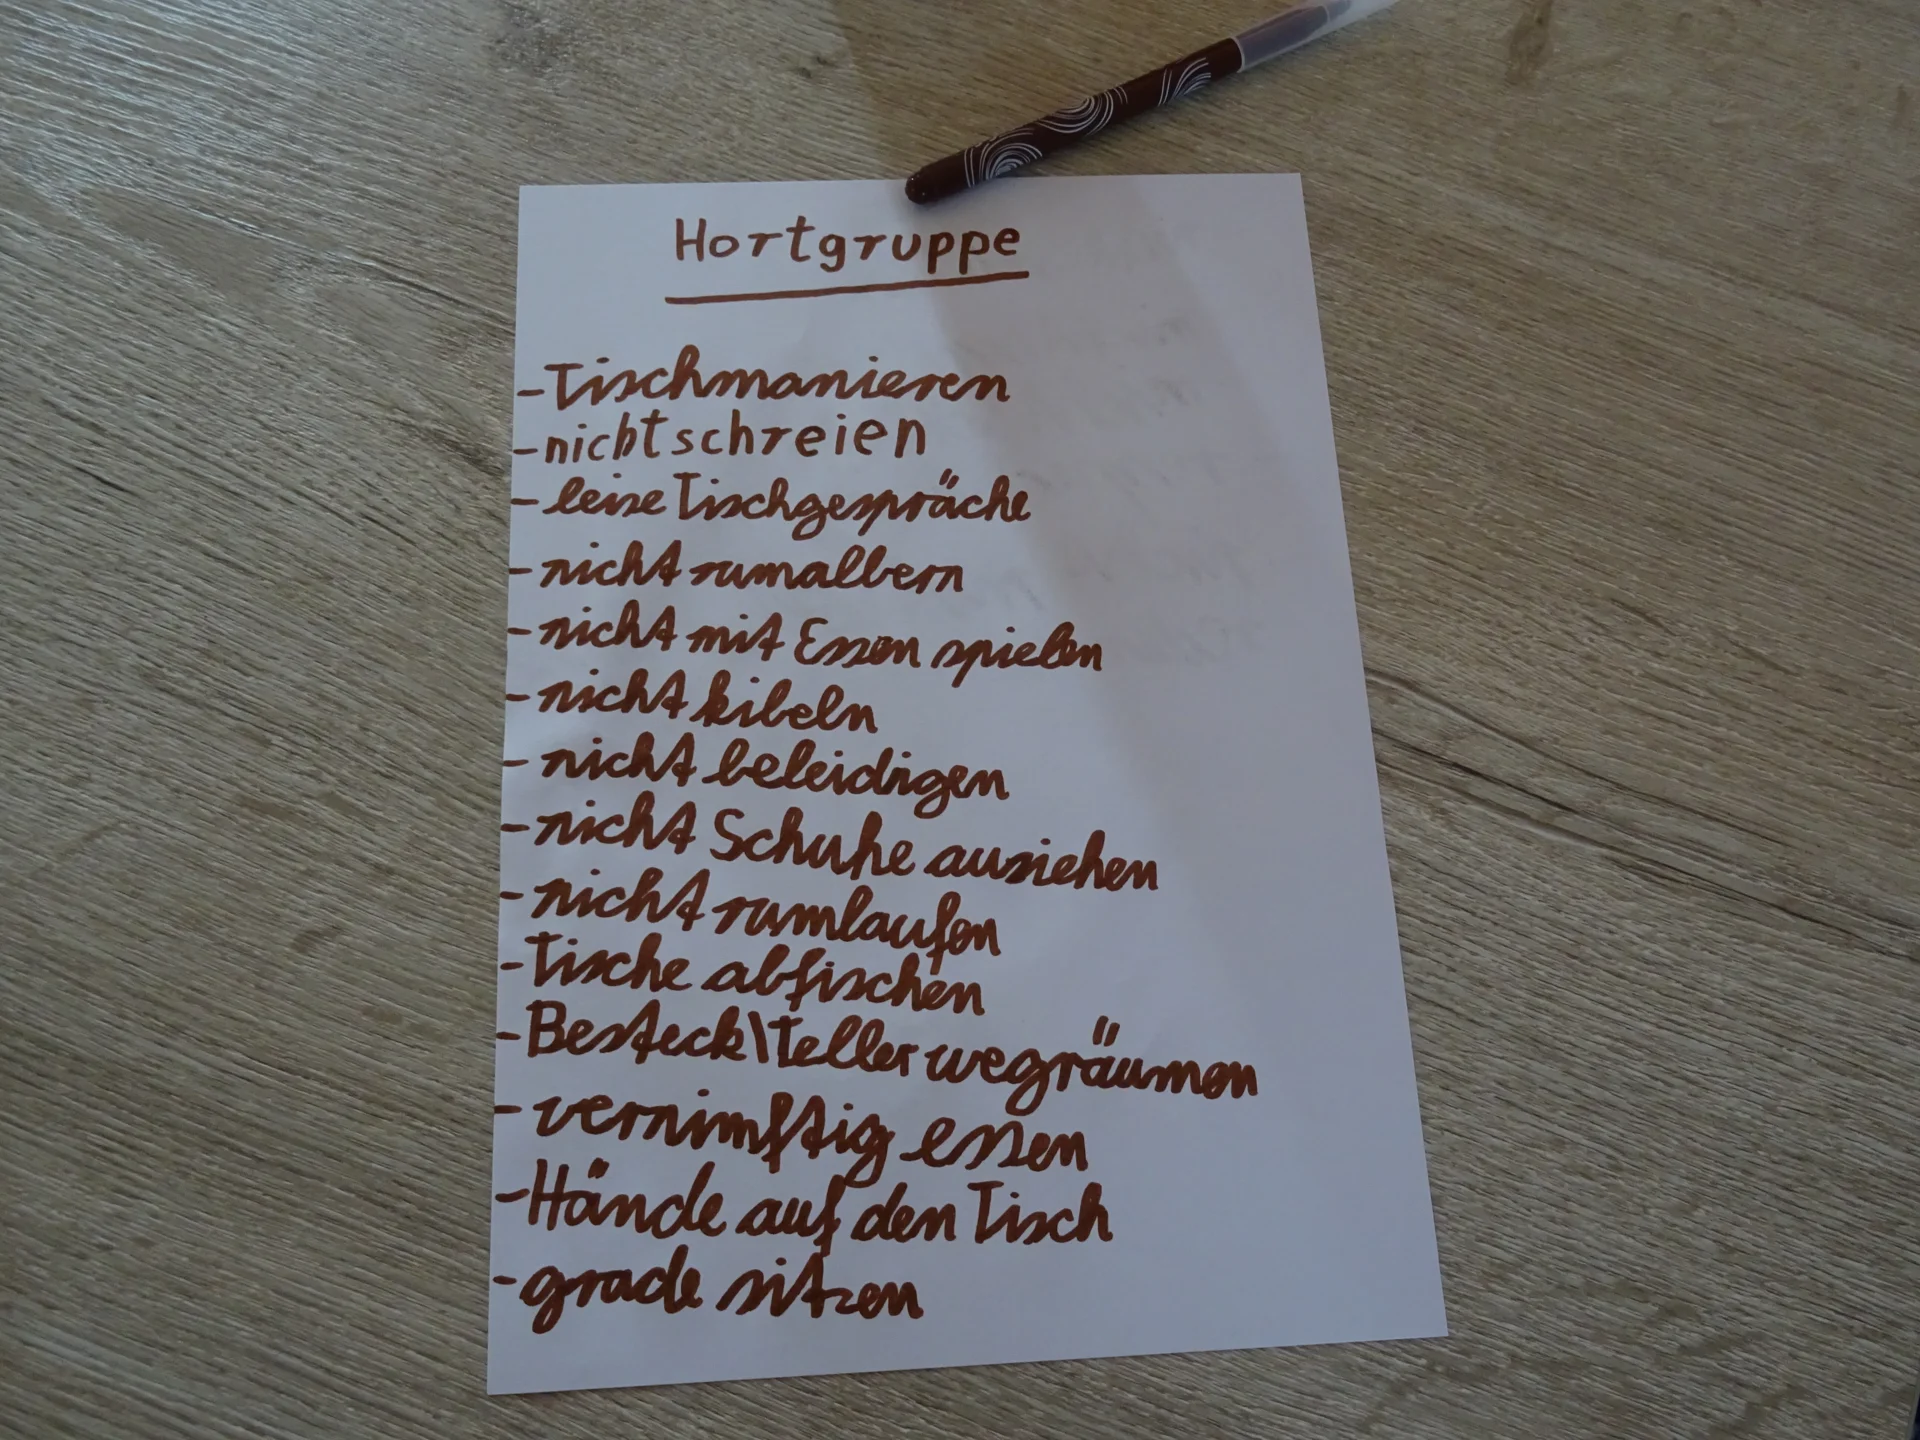 Hortgruppe
-Tischmanieren
-nicht schreien
-leise Tischgespräche
-nicht rumalbern
-nicht mit Essen spielen
-nicht kibeln
-nicht beleidigen
-nicht Schuhe ausiehen
-nicht rumlaufen
-Tische abfischen
-Besteck\Teller wegräumen
-vernimftig essen
-Hände auf den Tisch
-grade sitzen